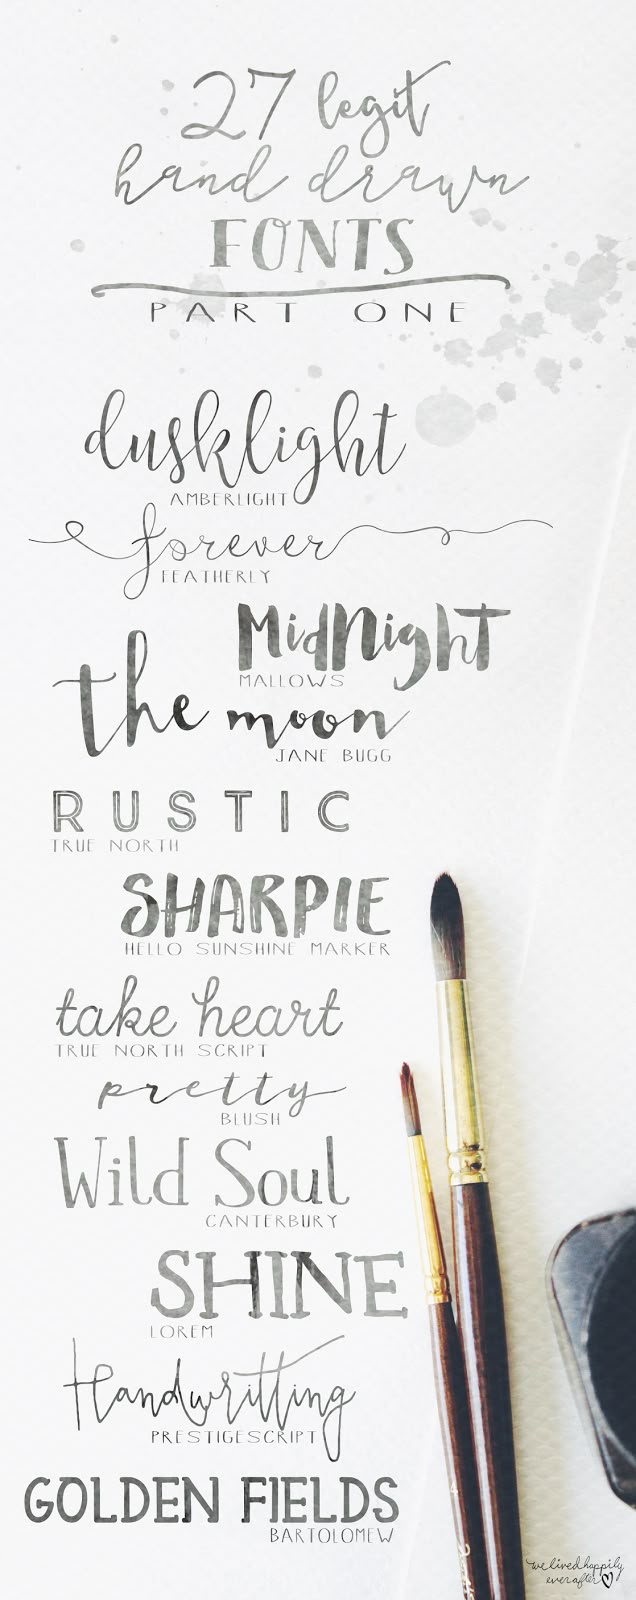 27 legit
hand drawn
FONTS
PART ONE
dusklight
AMBERLIGHT
forever
FEATHERLY
MidNight
MALLOWS
the moon
JANE BUGG
RUSTIC
TRUE NORTH
SHARPIE
HELLO SUNSHINE MARKER
take heart
TRUE NORTH SCRIPT
pretty
BLUSH
Wild Soul
CANTERBURY
SHINE
LOREM
Handwritting
PRESTIGESCRIPT
GOLDEN FIELDS
BARTOLOMEW
we lived happily
ever after